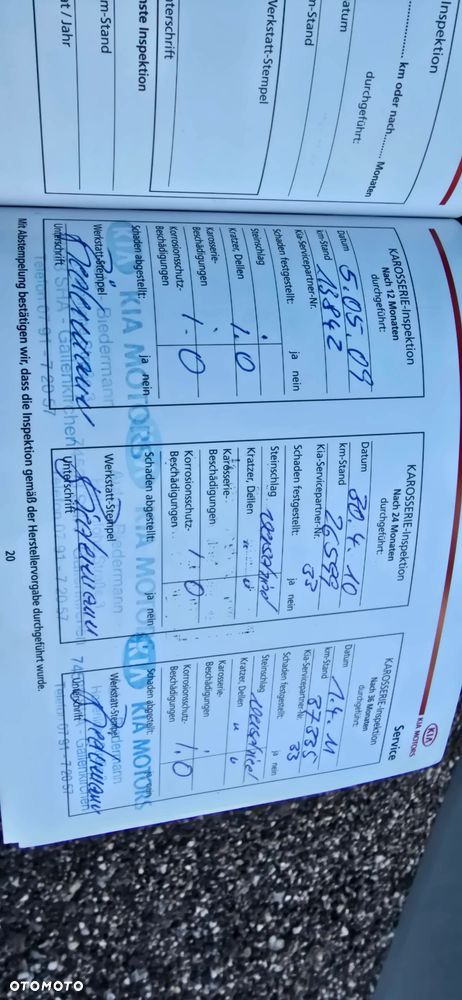 Inspektion
km oder nach........ Monaten
durchgeführt:
Datum
m-Stand
Verkstatt-Stempel
terschrift
nste Inspektion
m-Stand
at / Jahr
Service
KIA
KIA MOTORS
KAROSSERIE-Inspektion
Nach 12 Monaten
durchgeführt:
Datum 5.05.09
km-Stand 13842
Kia-Servicepartner-Nr.
Schaden festgestellt: ja nein
Steinschlag
Kratzer, Dellen
Karosserie-
Beschädigungen
Korrosionsschutz-
Beschädigungen
Schaden abgestellt: ja nein
KIA MOTORS
Werkstatt-Stempel
Biedermann
Unterschrift
SHA - Gailenkirchen
Telefon 07 91 - 7 20 57
KAROSSERIE-Inspektion
Nach 24 Monaten
durchgeführt:
Datum 30.4.10
km-Stand 26598
Kia-Servicepartner-Nr. 33
Schaden festgestellt: ja nein
Steinschlag
Kratzer, Dellen
Karosserie-
Beschädigungen
Korrosionsschutz-
Beschädigungen
Schaden abgestellt: ja nein
KIA MOTORS
Werkstatt-Stempel
Biedermann
Unterschrift
07 91 - 7 20 57
KAROSSERIE-Inspektion
Nach 36 Monaten
durchgeführt:
Datum 1.4.11
km-Stand 37335
Kia-Servicepartner-Nr. 33
Schaden festgestellt: ja nein
Steinschlag
Kratzer, Dellen
Karosserie-
Beschädigungen
Korrosionsschutz-
Beschädigungen
Schaden abgestellt:
KIA MOTORS
Werkstatt-Stempel
Unterschrift
Gailenkirchen
Telefon 07 91 - 7 20 57
Mit Abstempelung bestätigen wir, dass die Inspektion gemäß der Herstellervorgabe durchgeführt wurde.
20
OTOMOTO